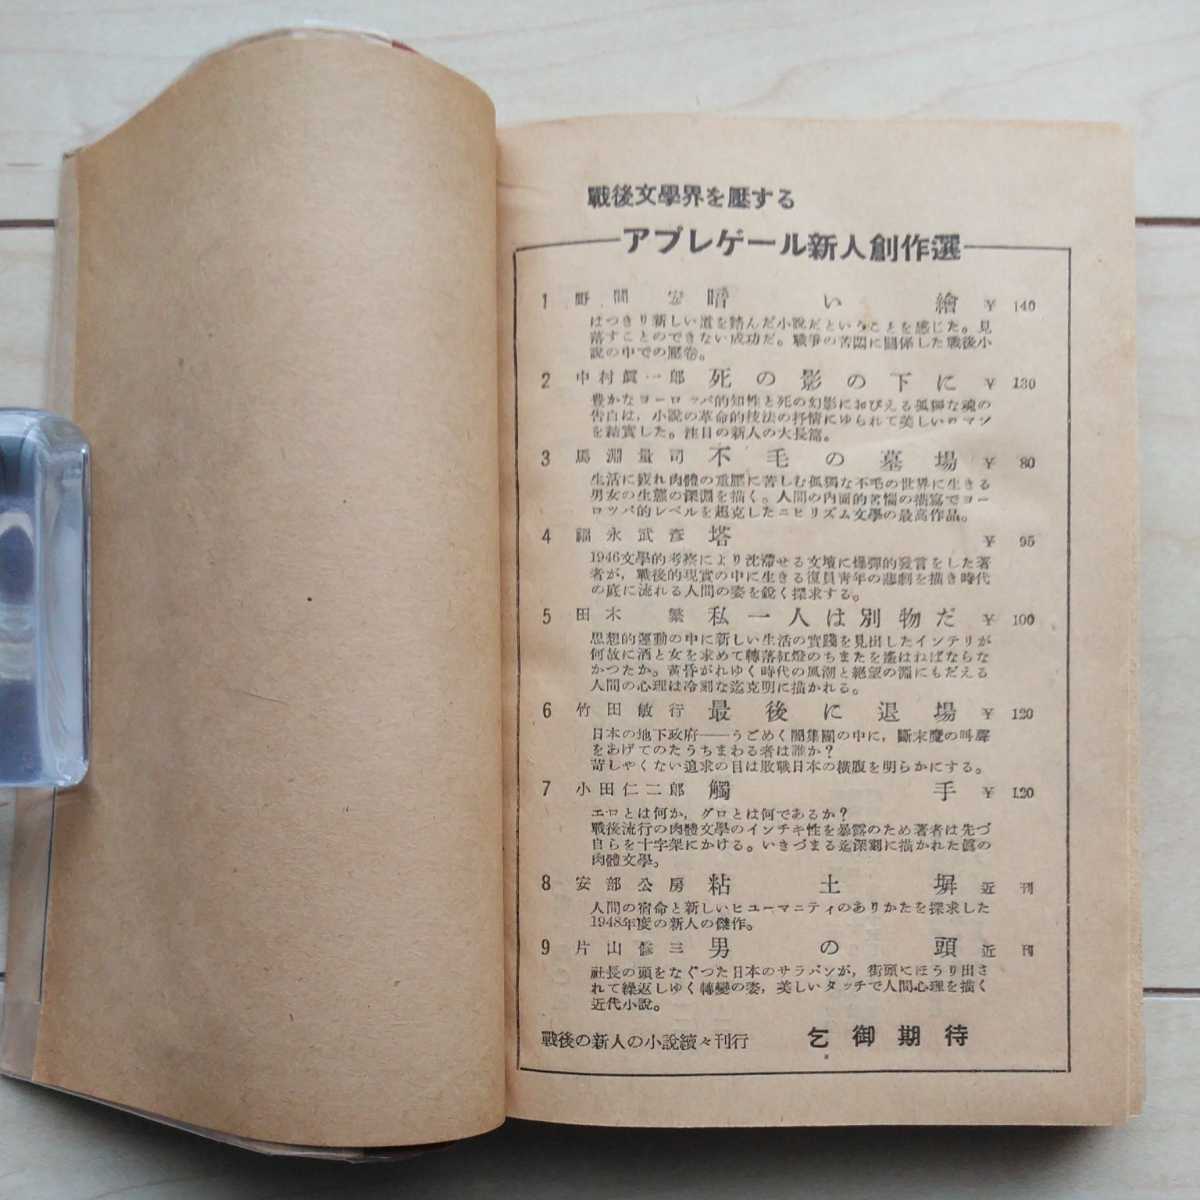 戰後文學界を壓する
アプレゲール新人創作選
1 野間 宏 暗い繪 ¥ 140
はつきり新しい道を踏んだ小說だということを感じた。見
落すことのできない成功だ。戰爭の苦悶に關係した戰後小
說の中での壓卷。
2 中村眞一郎 死の影の下に ¥ 130
豊かなヨーロッパ的知性と死の幻影におびえる孤獨な魂の
告白は，小說の革命的技法の抒情にゆられて美しいロマン
を結實した。注目の新人の大長篇。
3 馬淵量司 不毛の墓場 ¥ 80
生活に疲れ肉體の重壓に苦しむ孤獨な不毛の世界に生きる
男女の生態の深淵を描く。人間の內面的苦惱の描寫でヨー
ロツパ的レベルを超克したニヒリズム文學の最高作品。
4 福永武彥 塔 ¥ 95
1946文學的考察により沈滯せる文壇に爆彈的發言をした著
者が，戰後的現實の中に生きる復員靑年の悲劇を描き時代
の底に流れる人間の姿を銳く探求する。
5 田木 繁 私一人は別物だ ¥ 100
思想的運動の中に新しい生活の實踐を見出したインテリが
何故に酒と女を求めて轉落紅燈のちまたを遙はねばならな
かつたか。黃昏がれゆく時代の風潮と絕望の淵にもだえる
人間の心理は冷剡な迄克明に描かれる。
6 竹田敏行 最後に退場 ¥ 120
日本の地下政府――うごめく闇集團の中に，斷末魔の叫聲
をあげてのたうちまわる者は誰か？
苛しやくない追求の目は敗戰日本の橫腹を明らかにする。
7 小田仁二郎 觸手 ¥ 120
エロとは何か，グロとは何であるか？
戰後流行の肉體文學のインチキ性を暴露のため著者は先づ
自らを十字架にかける。いきづまる迄深刻に描かれた眞の
肉體文學。
8 安部公房 粘土塀 近刊
人間の宿命と新しいヒユーマニティのありかたを探求した
1948年度の新人の傑作。
9 片山修三 男の頭 近刊
社長の頭をなぐつた日本のサラバンが，街頭にほうり出さ
れて繰返しゆく轉變の姿，美しいタッチで人間心理を描く
近代小說。
戰後の新人の小說續々刊行 乞御期待